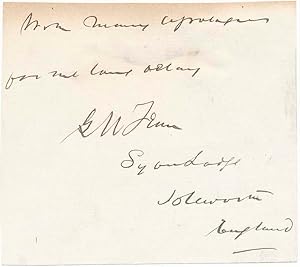 With many apologies
for the long delay
G M Fenn
Syon Lodge
Isleworth
England